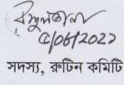 ৫/06/2022
সদস্য, রুটিন কমিটি